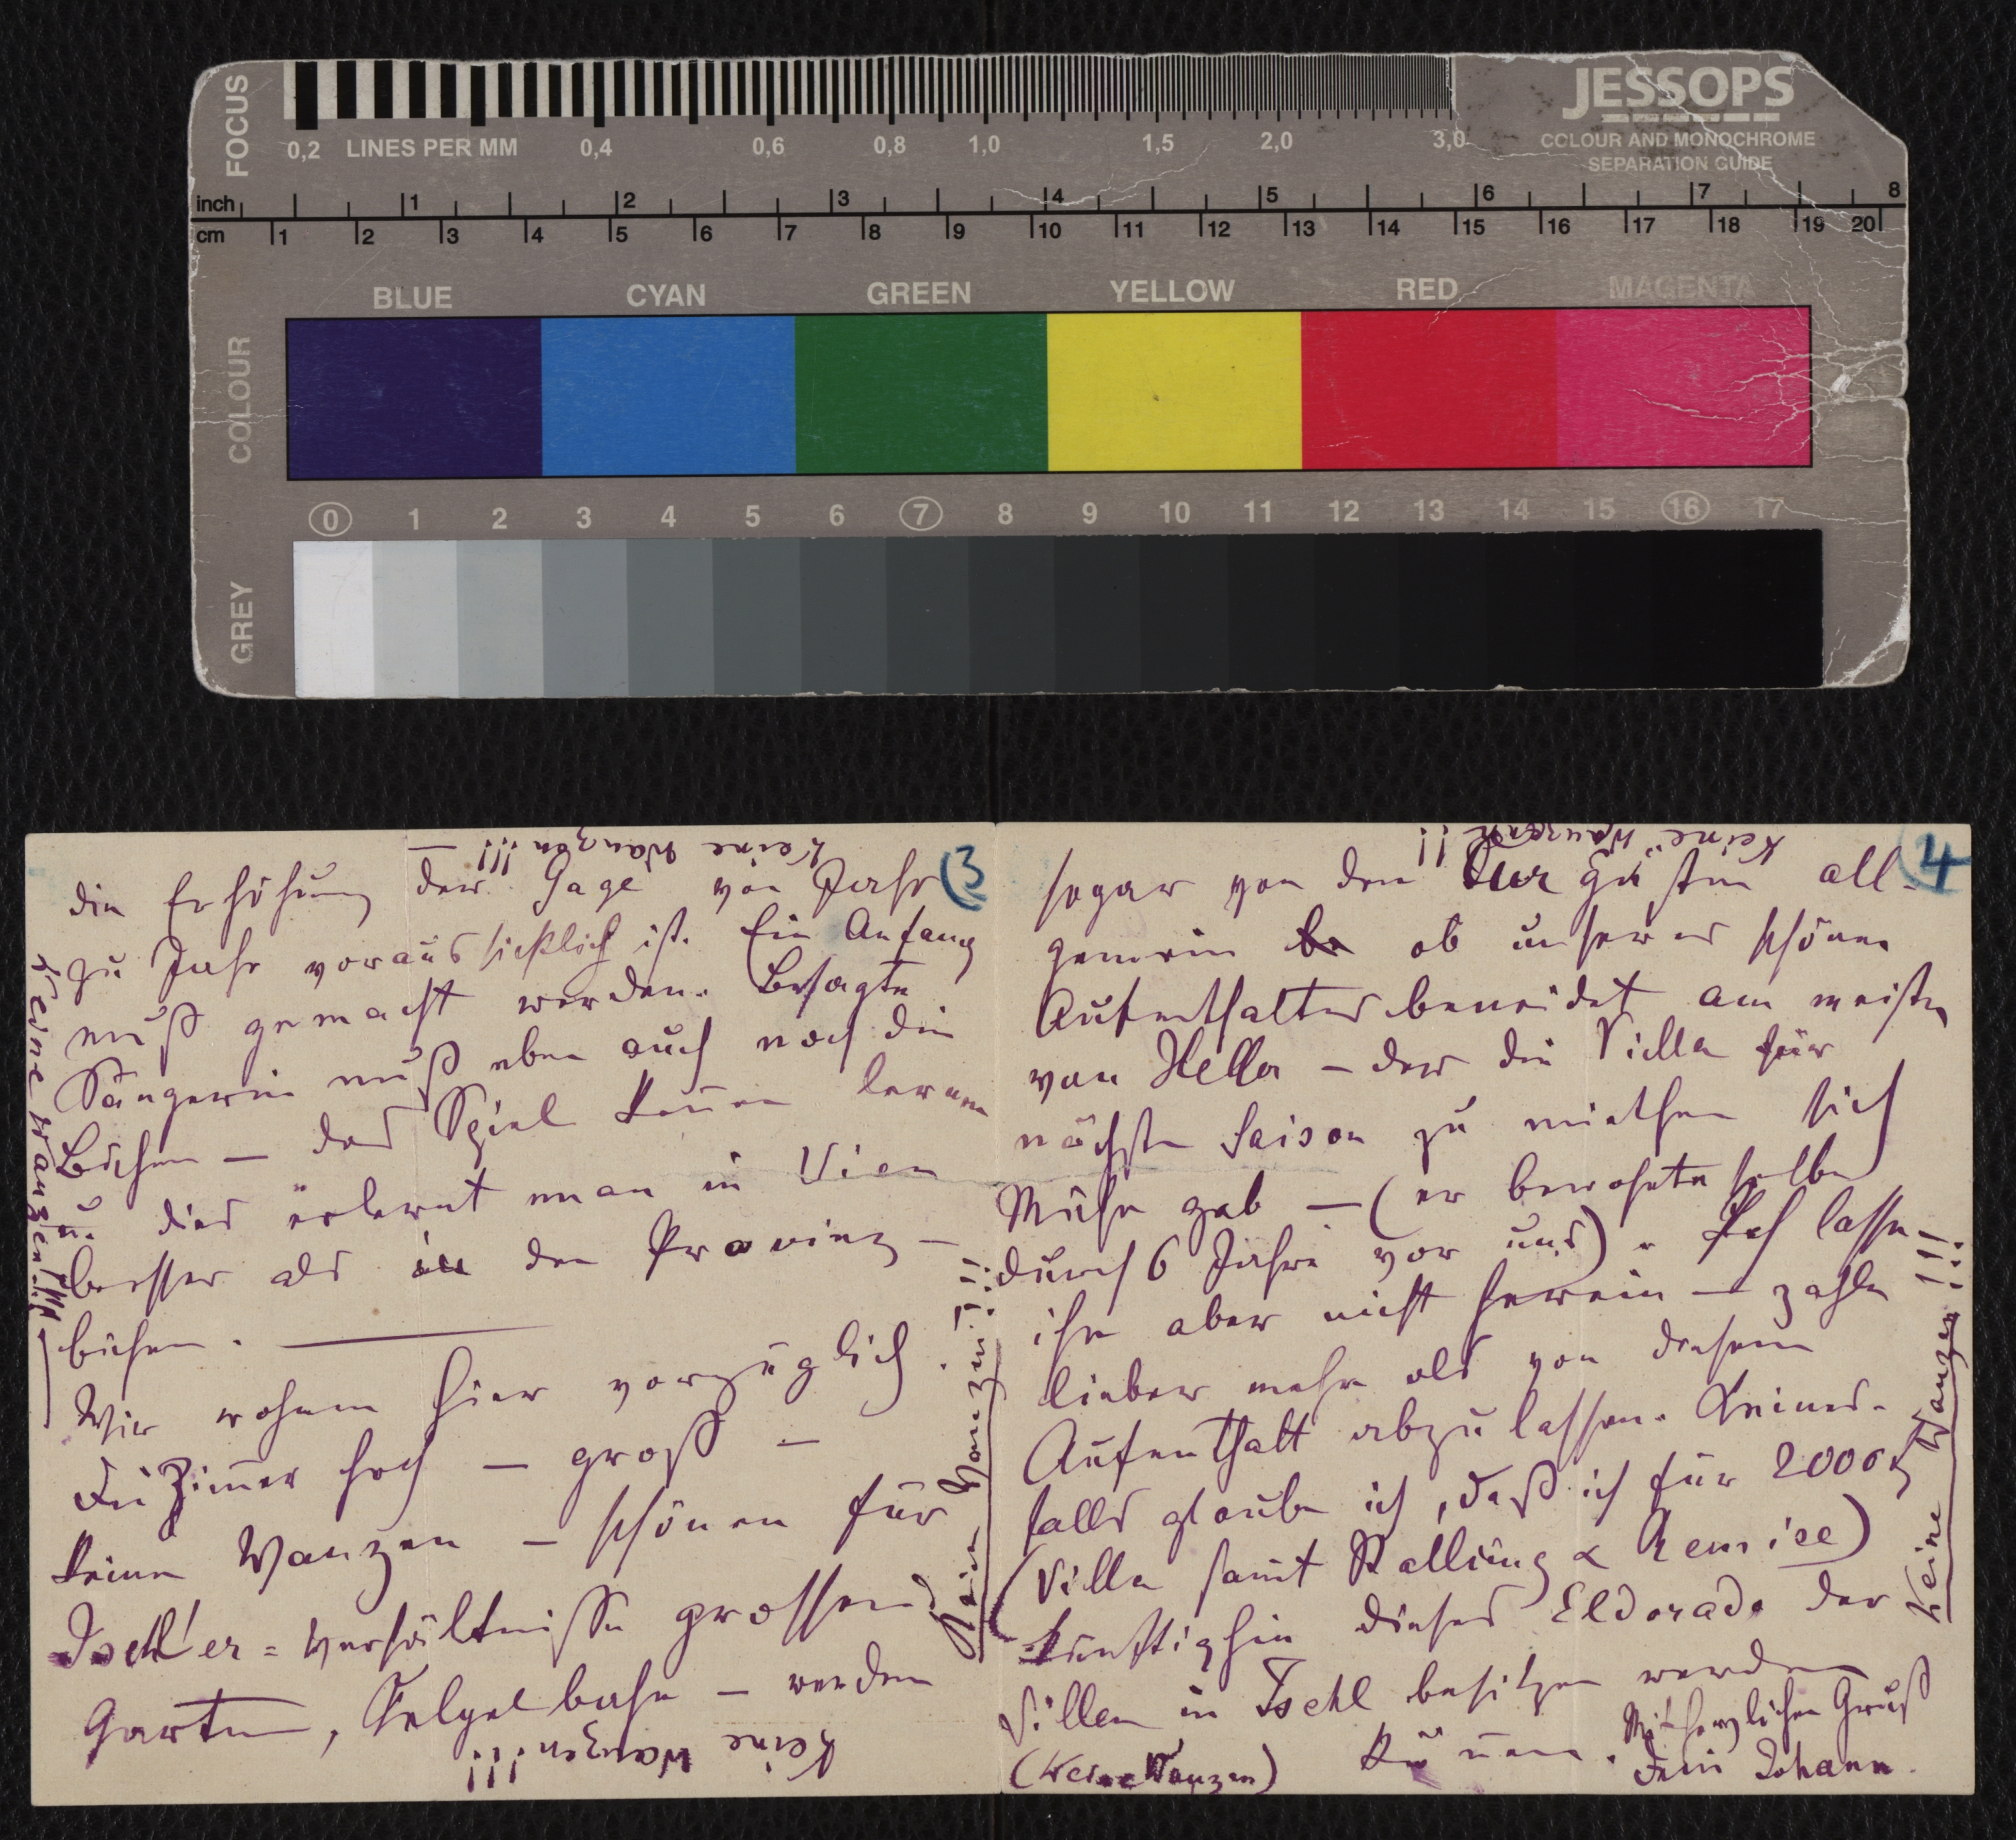 FOCUS
0,2 LINES PER MM 0,4 0,6 0,8 1,0 1,5 2,0 3,0
JESSOPS
COLOUR AND MONOCHROME
SEPARATION GUIDE
inch 1 2 3 4 5 6 7 8
cm 1 2 3 4 5 6 7 8 9 10 11 12 13 14 15 16 17 18 19 20
COLOUR
BLUE CYAN GREEN YELLOW RED MAGENTA
0 1 2 3 4 5 6 7 8 9 10 11 12 13 14 15 16 17
GREY
Keine Wanzen!!! —
3
die Erhöhung der Gage von Jahr
zu Jahr voraussichtlich ist. Ein Anfang
muß gemacht werden. Besagte
Sängerin muß eben auch noch die
Bühne — das Spiel kennen lernen
u. dies erlernt man in Wien
besser als in den Provinz-
bühen. —
Wir wohnen hier vorzüglich.
Die Zimmer hoch — groß —
keine Wanzen — schönen für
Ischl'er=Verhältnisse grossen
Garten, Kegelbahn — werden
Keine Wanzen!!!
Keine Wanzen!!!
Keine Wanzen!!!
Keine Wanzen!!
4
sogar von den Kurgästen all-
gemein ob unseres schönen
Aufenthaltes beneidet am meisten
von Heller — der die Villa für
nächste Saison zu miethen sich
Mühe gab — (er bewohnte selbe
durch 6 Jahre vor uns). Ich lasse
ihn aber nicht herein — zahle
lieber mehr als von diesem
Aufenthalt abzulassen. Keines-
falls glaube ich, daß ich für 2000
(Villa samt Stallung & Remise)
künftighin dieses Eldorado der
Villen in Ischl besitzen werden
können.
(Keine Wanzen)
Mit herzlichen Gruß
Dein Johann.
Keine Wanzen!!!